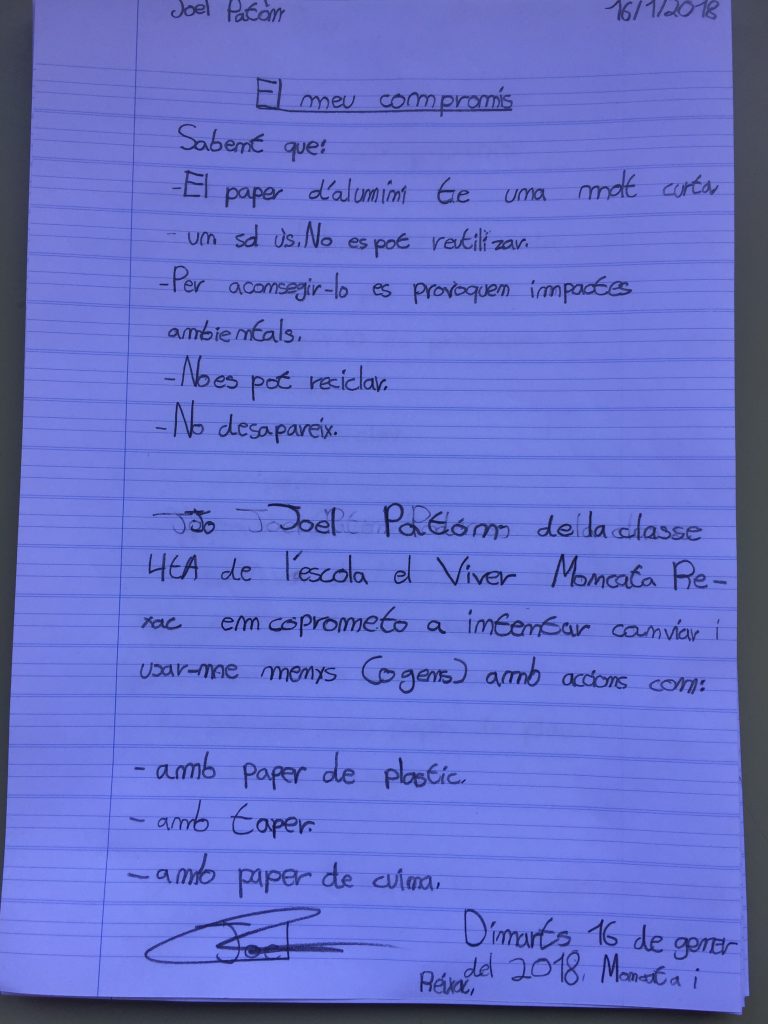 Joel Patóm 16/1/2018
El meu compromís
Sabent que:
-El paper d'alumini te una molt curta
- un sol ús. No es pot reutilizar.
-Per aconsegir-lo es provoquen impactes
ambientals.
-No es pot reciclar.
-No desapareix.
Jo Joel Patóm de la classe
4tA de l'escola el Viver Moncata Re-
xac em coprometo a intentar canviar i
usar-ne menys (o gens) amb accions com:
- amb paper de plastic.
- amb taper.
- amb paper de cuina.
Joel
Dimarts 16 de gener
del 2018. Moncata i
Réixac,